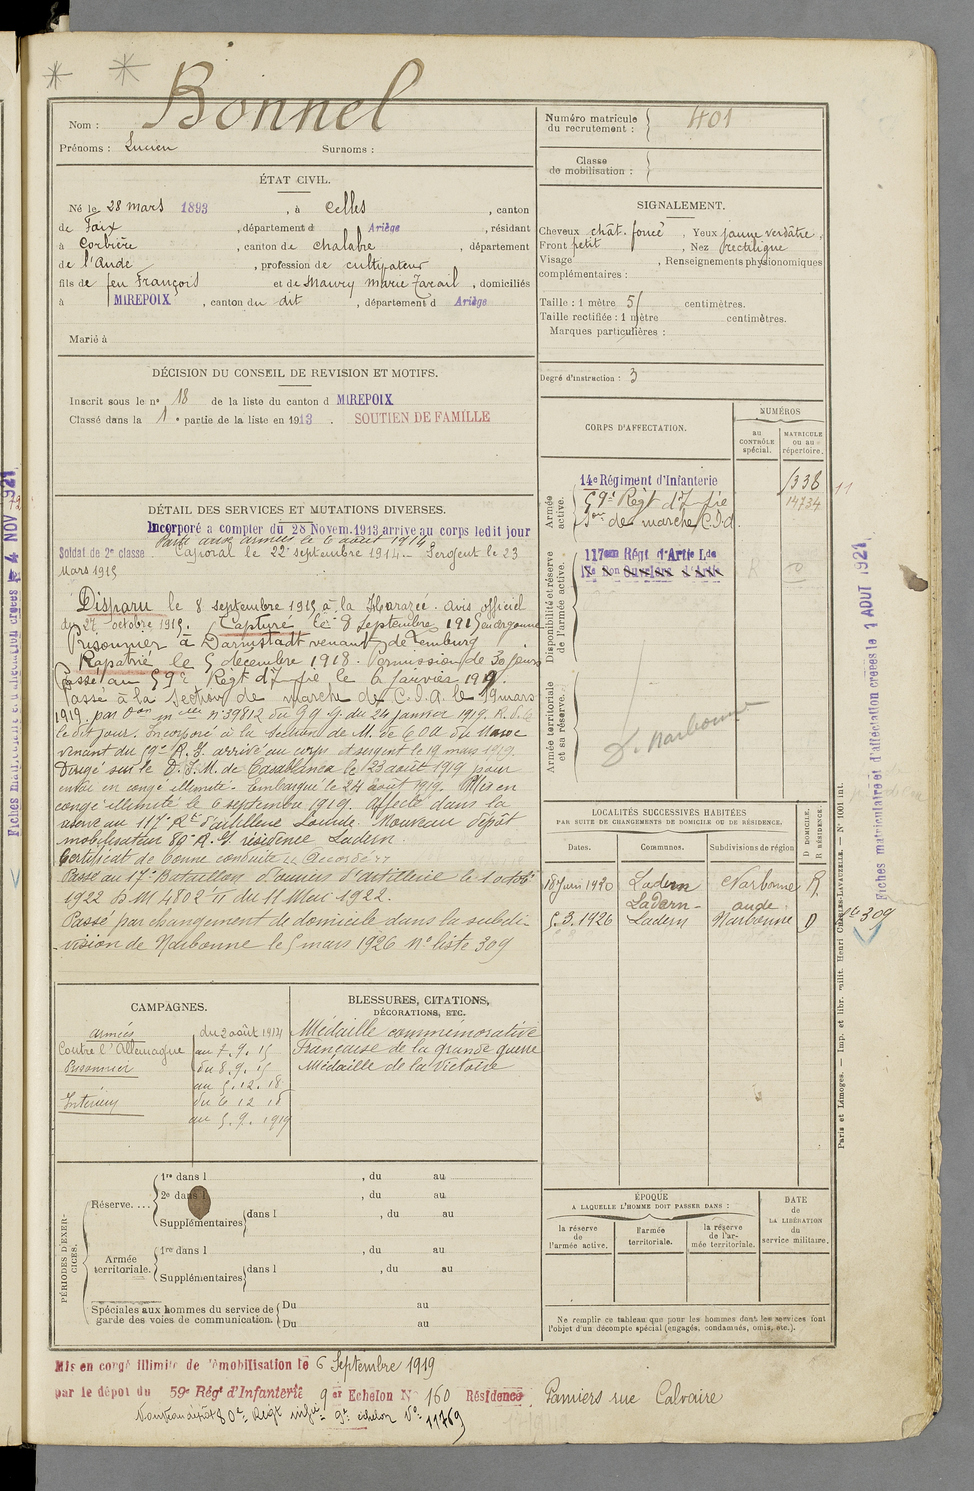 Nom : Bonnel
Prénoms : Lucien Surnoms :
ÉTAT CIVIL.
Né le 28 mars 1893, à Celles, canton
de Foix, département d Ariège, résidant
à Corbière, canton de Chalabre, département
de l'Aude, profession de cultivateur
fils de feu François et de Maury Marie, domiciliés
à MIREPOIX, canton du dit, département d Ariège
Marié à
DÉCISION DU CONSEIL DE REVISION ET MOTIFS.
Inscrit sous le n° 18 de la liste du canton d MIREPOIX
Classé dans la 1e partie de la liste en 1913. SOUTIEN DE FAMILLE
DÉTAIL DES SERVICES ET MUTATIONS DIVERSES.
Incorporé à compter du 28 Novem. 1913 arrivé au corps ledit jour
Parti aux armées le 6 août 1914
Soldat de 2e classe Caporal le 22 septembre 1914. Sergent le 23
Mars 1915
Disparu le 8 septembre 1915 à la Harazée. avis officiel
du 27 octobre 1915. Capturé le 8 septembre 1915 en argonne
Prisonnier à Darmstadt venant de Limburg
Rapatrié le 5 décembre 1918. Permission de 30 jours
Passé au 59e Régt d'Ifie le 6 janvier 1919.
Passé à la Section de marche de C.O.A. le 19 mars
1919. par Oon mlle n° 39812 du G.Q.G. du 24 janvier 1919.
le dit jour. Incorporé à la section de M. de C O A du Maroc
venant du R.I. arrivé au corps et sergent le 19 mars 1919.
Dirigé sur le D.I.M. de Casablanca le 23 août 1919 pour
envoi en congé illimité. Embarqué le 24 août 1919. Mis en
congé illimité le 6 septembre 1919. Affecté dans la
réserve au 117e Rt d'artillerie Lourde. Nouveau dépôt
mobilisateur 80e R.I. résidence Ladern.
Certificat de bonne conduite "Accordé"
Passé au 17e Bataillon d'ouvriers d'artillerie le 1 octobre
1922 D.M 4802 11 du 11 Mai 1922.
Passé par changement de domicile dans la subdi-
vision de Narbonne le 5 mars 1926 n° liste 309
CAMPAGNES.
armées du 2 août 1914
Contre l'Allemagne au 7.9.15
Prisonnier du 8.9.15
au 5.12.18
Intérieur du 6 12 18
au 5.9.1919
BLESSURES, CITATIONS,
DÉCORATIONS, ETC.
Médaille commémorative
Française de la grande guerre
Médaille de la Victoire
PÉRIODES D'EXERCICES.
Réserve....
1re dans l , du au
2e dans l , du au
Supplémentaires dans l , du au
Armée territoriale.
1re dans l , du au
Supplémentaires dans l , du au
Spéciales aux hommes du service de garde des voies de communication.
Du au
Du au
Numéro matricule du recrutement : 401
Classe de mobilisation :
SIGNALEMENT.
Cheveux chât. foncé, Yeux jaune verdâtre,
Front petit, Nez rectiligne
Visage , Renseignements physionomiques
complémentaires :
Taille : 1 mètre 51 centimètres.
Taille rectifiée : 1 mètre centimètres.
Marques particulières :
Degré d'instruction : 3
CORPS D'AFFECTATION.
NUMÉROS
au CONTRÔLE spécial.
MATRICULE ou au répertoire.
Armée active.
14e Régiment d'Infanterie 1338
59e Régt d'Ifie 14734
Son de marche C.O.A.
Disponibilité et réserve de l'armée active.
117eme Régt d'Artie Lde
17e Bon Ouvriers d'Artie
Armée territoriale et sa réserve.
D. Narbonne
LOCALITÉS SUCCESSIVES HABITÉES
PAR SUITE DE CHANGEMENTS DE DOMICILE OU DE RÉSIDENCE.
Dates. Communes. Subdivisions de région D DOMICILE. R RÉSIDENCE.
18 Juin 1920 Ladern Narbonne R
Ladern- aude
5.3.1926 Ladern Narbonne D
ÉPOQUE
A LAQUELLE L'HOMME DOIT PASSER DANS :
la réserve de l'armée active.
l'armée territoriale.
la réserve de l'armée territoriale.
DATE de LA LIBÉRATION du service militaire.
Ne remplir ce tableau que pour les hommes dont les services font
l'objet d'un décompte spécial (engagés, condamnés, omis, etc.).
Mis en congé illimité de démobilisation le 6 Septembre 1919
par le dépôt du 59e Régt d'Infanterie 9e Echelon N° 160 Résidence. Pamiers rue Calvaire
Nouveau dépôt 80e Régt infie 9e échelon N° 11769
11
n° 309
Fiches matriculaire et d'affectation créées le 1 AOUT 1921
Fiches matriculaire et d'affectation créées le 4 NOV 1921
Paris et Limoges. — Imp. et libr. milit. Henri Charles-Lavauzelle. — N° 1001 int.